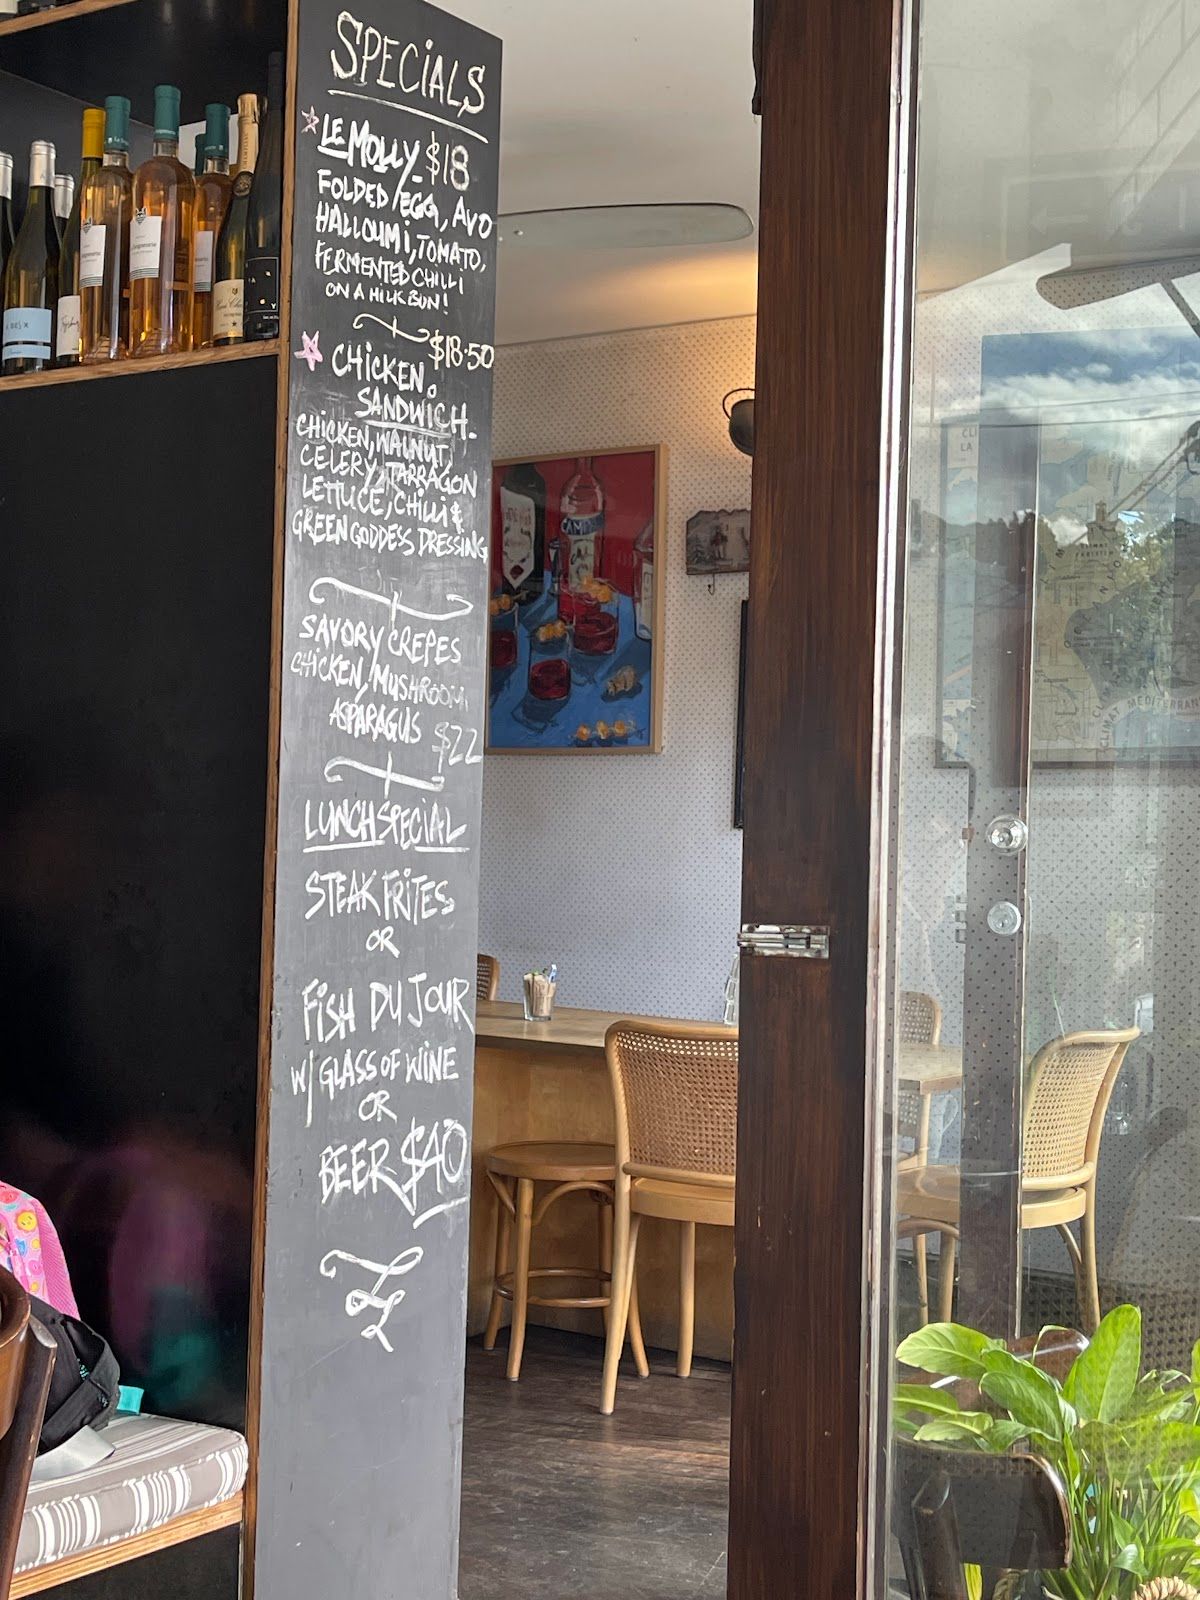 SPECiALS
LE MOLLY $18
FOLDED EGG, AVO
HALLOUMi, TOMATO,
FERMENTED CHILLI
ON A MILK BUN!
$18.50
CHiCKEN
SANDWiCH.
CHiCKEN, WALNUT,
CELERY, TARRAGON
LETTUCE, CHiLLi &
GREEN GODDESS DRESSiNG
SAVORY CREPES
CHiCKEN, MUSHROOM,
ASPARAGUS $22
LUNCH SPECiAL
STEAK FRiTES
OR
FiSH DU JOUR
W/ GLASS OF WiNE
OR
BEER $40
CAMPARI
MEDITERRAN